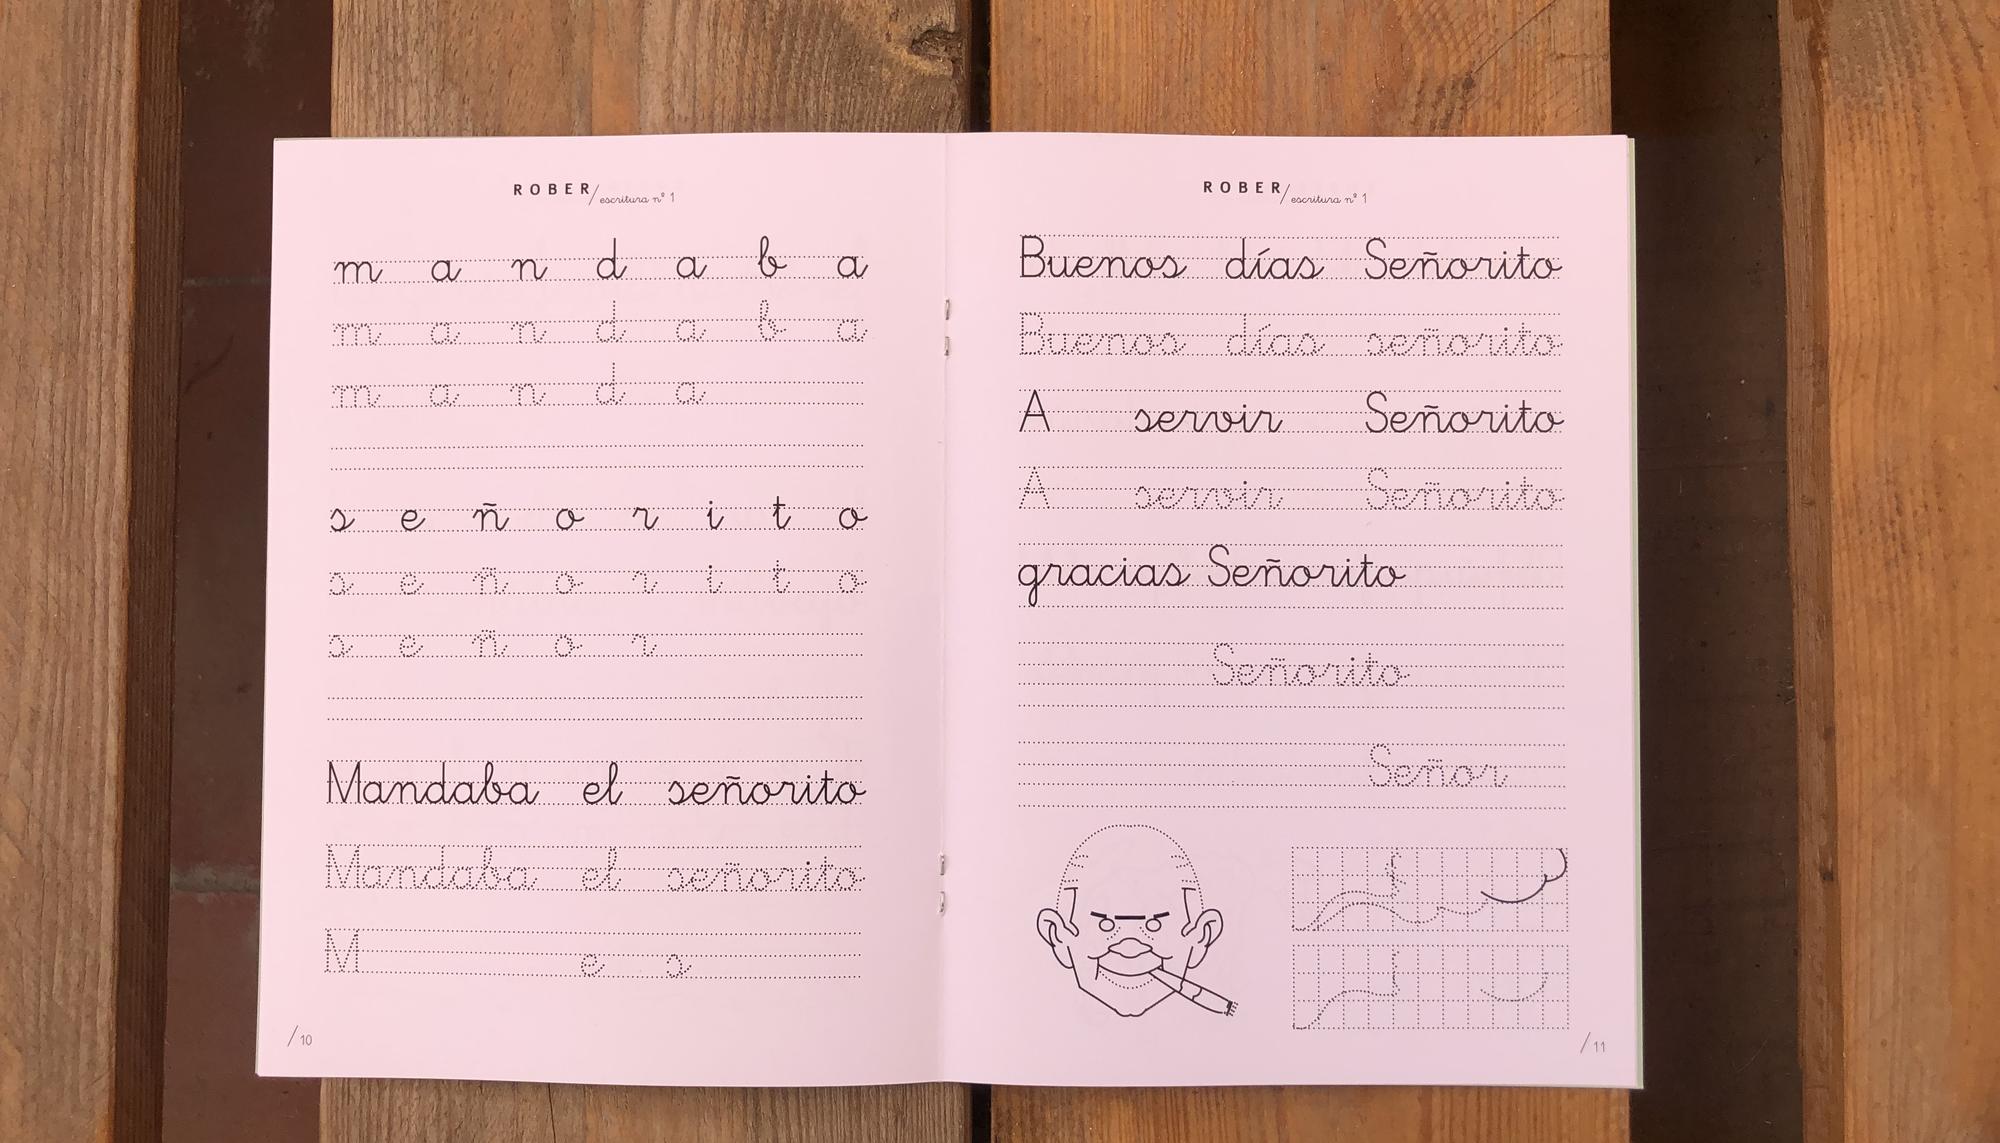 ROBER/escritura nº 1
m a n d a b a
m a n d a b a
m a n d a
s e ñ o r i t o
s e ñ o r i t o
s e ñ o r
Mandaba el señorito
Mandaba el señorito
M e s
/10
ROBER/escritura nº 1
Buenos días Señorito
Buenos días señorito
A servir Señorito
A servir Señorito
gracias Señorito
Señorito
Señor
/11